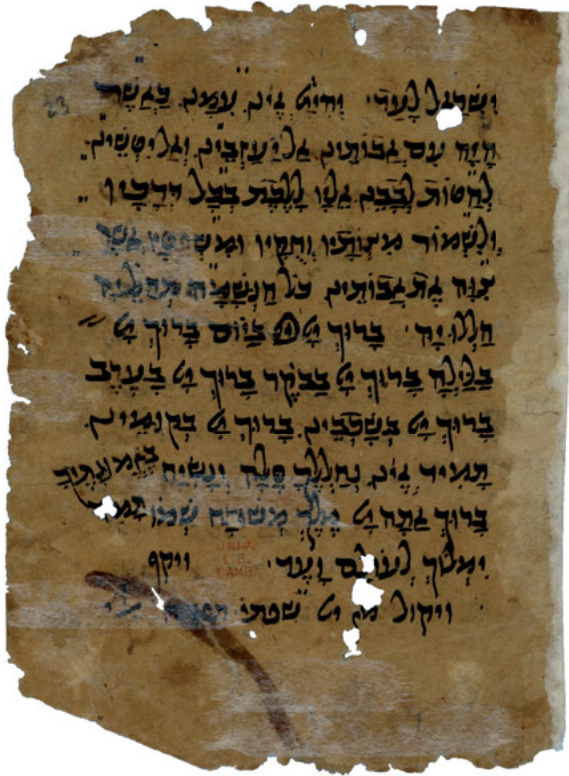 ישראל לעד׳ ויהי יי אינו עמנו כאשר
היה עם אבותינו אל יעזבינו ואל יטשינו
להטות לבבנו אליו ללכת בכל דרכיו
ולשמור מצותיו וחקיו ומשפטיו אשר
צוה את אבותינו כל הנשמה תהלל יה
הללו יה׳ ברוך יי ביום ברוך יי
בלילה ברוך יי בבקר ברוך יי בערב
ברוך יי בשכבינו ברוך יי בקומינו
תמיד אינו נהללך סלה ונשיח באמונתיך
ברוך אתה יי מלך משובח שמו תמיד
ימלוך לעולם ועד׳ ויקף
ויקול מן יי שפתי תפתח
UNIV.
LIB.
CAMB.